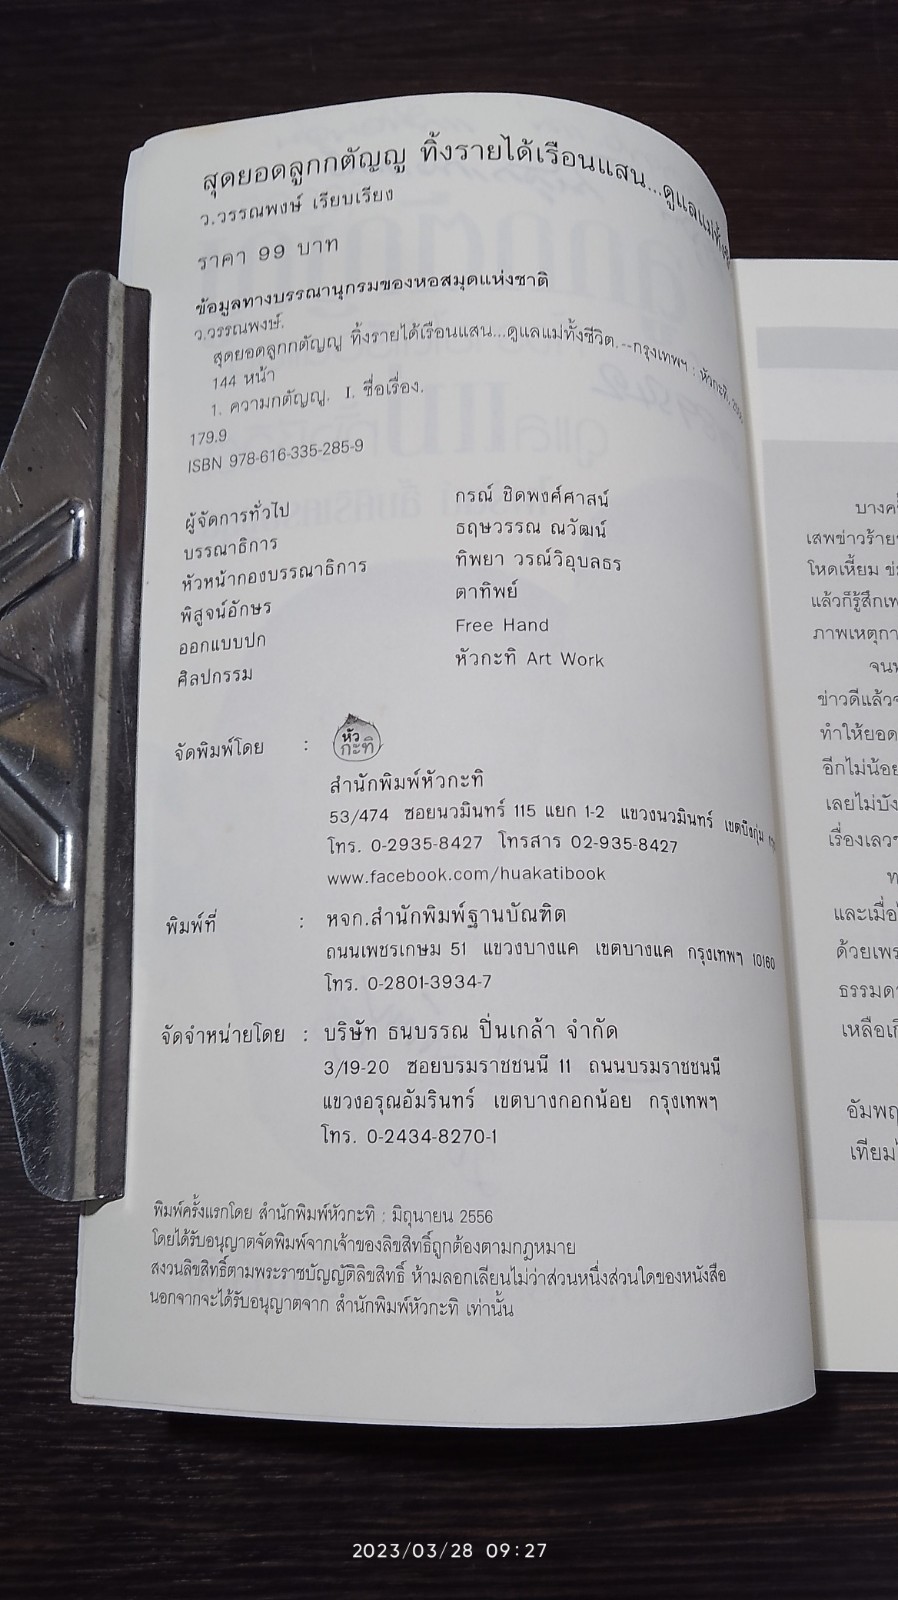 สุดยอดลูกกตัญญู ทิ้งรายได้เรือนแสน...ดูแลแม่ทั้งชีวิต
ว.วรรณพงษ์ เรียบเรียง
ราคา 99 บาท
ข้อมูลทางบรรณานุกรมของหอสมุดแห่งชาติ
ว.วรรณพงษ์.
สุดยอดลูกกตัญญู ทิ้งรายได้เรือนแสน...ดูแลแม่ทั้งชีวิต.--กรุงเทพฯ : หัวกะทิ, 2556
144 หน้า
1. ความกตัญญู. I. ชื่อเรื่อง.
179.9
ISBN 978-616-335-285-9
ผู้จัดการทั่วไป กรณ์ ชิดพงศ์ศาสน์
บรรณาธิการ ธฤษวรรณ ณวัฒน์
หัวหน้ากองบรรณาธิการ ทิพยา วรณ์วิอุบลธร
พิสูจน์อักษร ตาทิพย์
ออกแบบปก Free Hand
ศิลปกรรม หัวกะทิ Art Work
จัดพิมพ์โดย : หัวกะทิ
สำนักพิมพ์หัวกะทิ
53/474 ซอยนวมินทร์ 115 แยก 1-2 แขวงนวมินทร์ เขตบึงกุ่ม
โทร. 0-2935-8427 โทรสาร 02-935-8427
www.facebook.com/huakatibook
พิมพ์ที่ : หจก.สำนักพิมพ์ฐานบัณฑิต
ถนนเพชรเกษม 51 แขวงบางแค เขตบางแค กรุงเทพฯ 10160
โทร. 0-2801-3934-7
จัดจำหน่ายโดย : บริษัท ธนบรรณ ปิ่นเกล้า จำกัด
3/19-20 ซอยบรมราชชนนี 11 ถนนบรมราชชนนี
แขวงอรุณอัมรินทร์ เขตบางกอกน้อย กรุงเทพฯ
โทร. 0-2434-8270-1
พิมพ์ครั้งแรกโดย สำนักพิมพ์หัวกะทิ : มิถุนายน 2556
โดยได้รับอนุญาตจัดพิมพ์จากเจ้าของลิขสิทธิ์ถูกต้องตามกฎหมาย
สงวนลิขสิทธิ์ตามพระราชบัญญัติลิขสิทธิ์ ห้ามลอกเลียนไม่ว่าส่วนหนึ่งส่วนใดของหนังสือ
นอกจากจะได้รับอนุญาตจาก สำนักพิมพ์หัวกะทิ เท่านั้น
บางครั้
เสพข่าวร้าย
โหดเหี้ยม
แล้วก็รู้สึก
ภาพเหตุกา
จน
ข่าวดีแล้ว
ทำให้ยอด
อีกไม่น้อย
เลยไม่บัง
เรื่องเลว
และเมื่อ
ด้วยเพร
ธรรมดา
เหลือเกิ
อัมพฤ
เทียม
2023/03/28 09:27